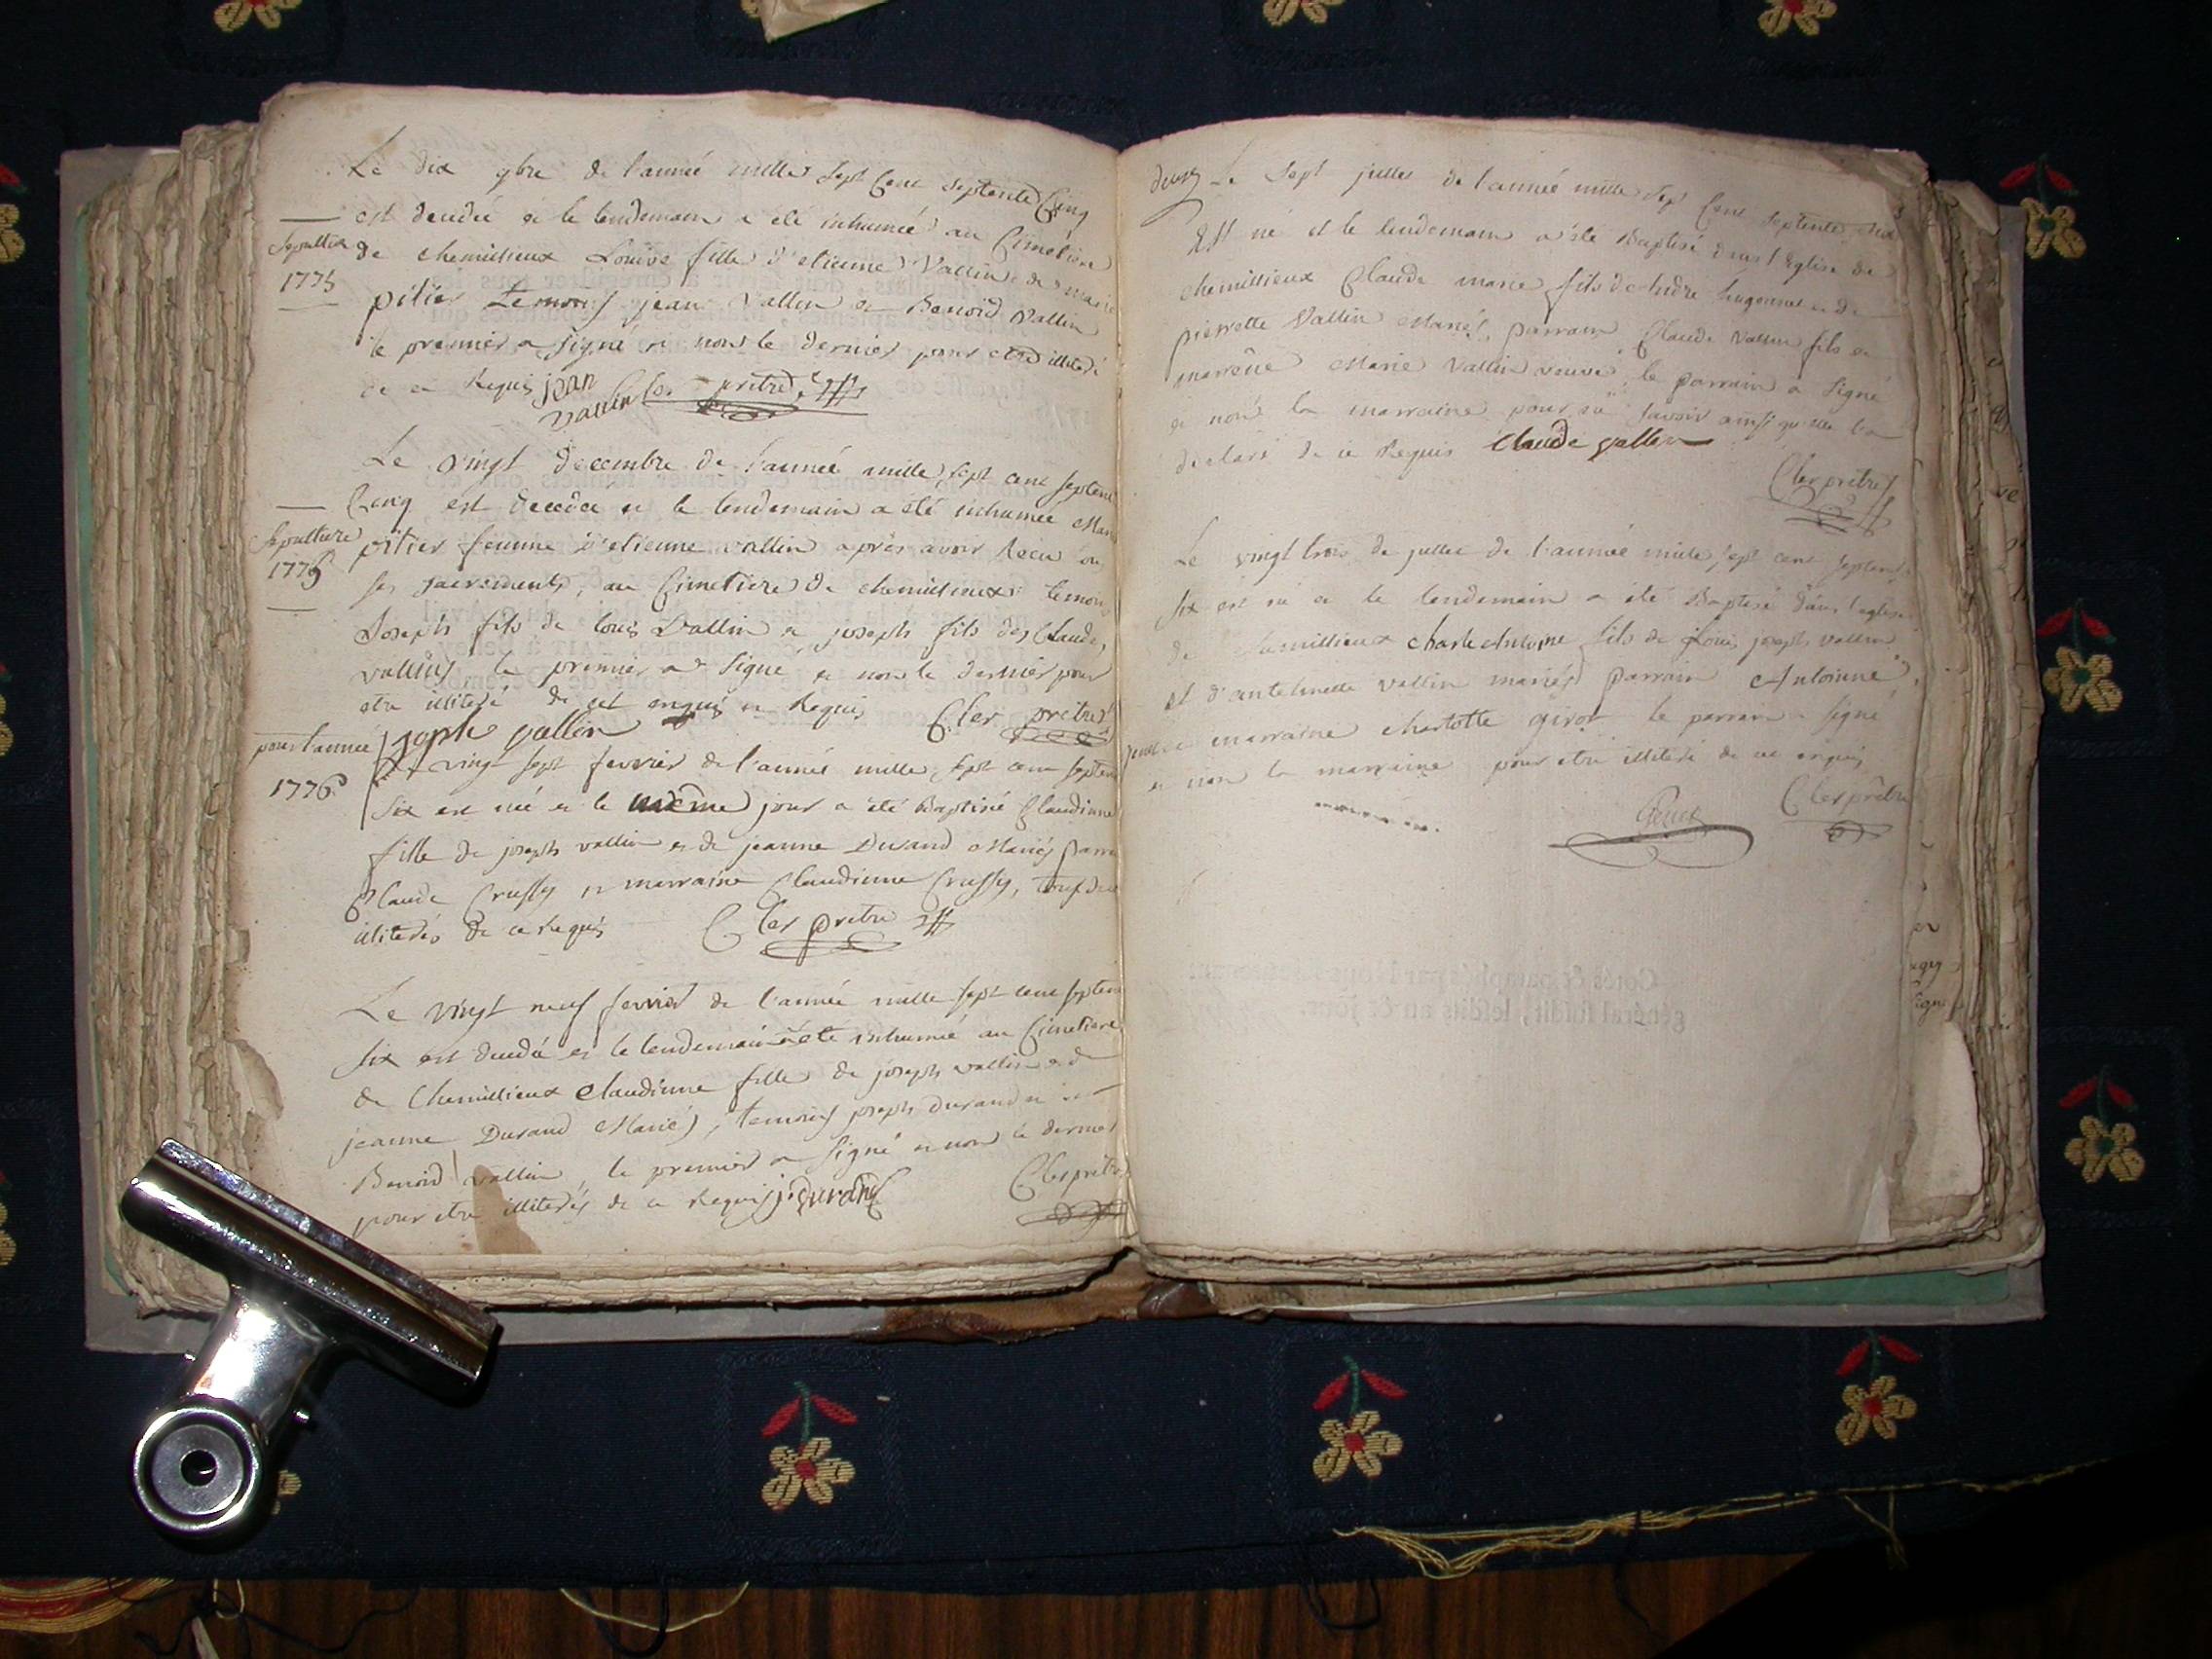 Le dix 9bre de l'année mille sept cent septente Cinq
est decedée et le lendemain a eté inhumée au Cimetiere
Sepulture
1775
de chemillieux Louise fille d'etienne Vallin et de marie
pitier temoins jean Vallin et Benoid Vallin
le premier a signé et non le dernier pour etre illiteré
de ce Requis jean vallin Cler prêtre
Le vingt decembre de l'année mille sept cent septente
Cinq est decedée et le lendemain a été inhumée Marie
Sepulture
1775
pitier femme d'etienne vallin après avoir Recu
ses sacrements, au Cimetiere de chemillieux temoins
Joseph fils de louis Vallin et joseph fils de Claude
vallin, le premier a signé et non le dernier pour
etre illiteré de cet enquis et Requis Cler prêtre
joseph vallin
pour l'année
1776
Le vingt sept fevrier de l'année mille sept cent septente
six est née et le même jour a été Baptisée Claudinne
fille de joseph vallin et de jeanne Durand Mariés parrain
Claude Crussy et marraine Claudinne Crussy, tous deux
illiterés de ce Requis Cler prêtre
Le vingt neuf fevrier de l'année mille sept cent septente
six est decedée et le lendemain a été inhumée au Cimetiere
de Chemillieux Claudinne fille de joseph vallin et de
jeanne Durand Mariés, temoins joseph Durand et
Benoid vallin, le premier a signé et non le dernier
pour etre illiterés de ce Requis j. durand Cler prêtre
deux
Le sept jullet de l'année mille sept Cent septente six
Est né et le lendemain a été Baptisé dans l'Eglise de
chemillieux Claude marie fils d'Andre hugonnet et de
pierrette Vallin Mariés, parrain Claude Vallin fils et
marreine Marie Vallin veuve, le parrain a signé
et non la marraine pour ne savoir ainsi qu'elle l'a
declaré de ce Requis Claude vallin
Cler prêtre
Le vingt trois de jullet de l'année mille sept cent septente
six est né et le lendemain a été Baptisé dans l'eglise
de chemillieux charle Antoine fils de Louis joseph vallin
et d'antelmette vallin mariés parrain Antoinne
marraine charlotte girot le parrain a signé
et non la marraine pour etre illiteré de ce enquis
Cler prêtre